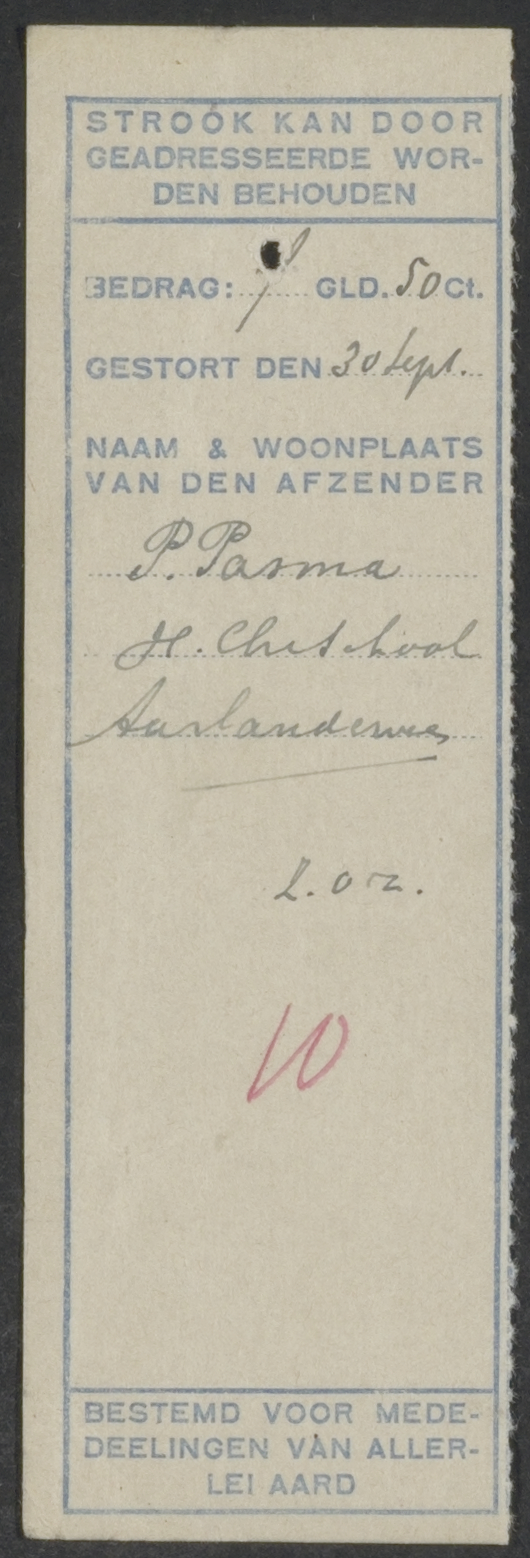 STROOK KAN DOOR
GEADRESSEERDE WOR-
DEN BEHOUDEN
BEDRAG: GLD. 50 Ct.
GESTORT DEN 30 Sept.
NAAM & WOONPLAATS
VAN DEN AFZENDER
P. Pasma
H. Chr School
Aarlanderveen
10
BESTEMD VOOR MEDE-
DEELINGEN VAN ALLER-
LEI AARD